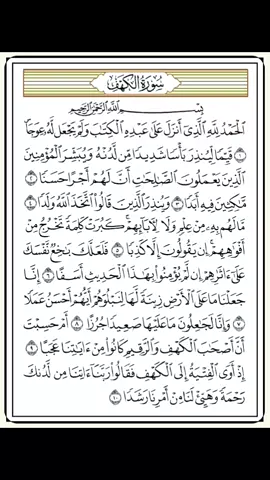 سُورَةُ الْكَهْفِ
بِسْمِ اللَّهِ الرَّحْمَٰنِ الرَّحِيمِ
الْحَمْدُ لِلَّهِ الَّذِي أَنزَلَ عَلَىٰ عَبْدِهِ الْكِتَابَ وَلَمْ يَجْعَل لَّهُ عِوَجًا
١ قَيِّمًا لِّيُنذِرَ بَأْسًا شَدِيدًا مِّن لَّدُنْهُ وَيُبَشِّرَ الْمُؤْمِنِينَ
الَّذِينَ يَعْمَلُونَ الصَّالِحَاتِ أَنَّ لَهُمْ أَجْرًا حَسَنًا ٢
مَّاكِثِينَ فِيهِ أَبَدًا ٣ وَيُنذِرَ الَّذِينَ قَالُوا اتَّخَذَ اللَّهُ وَلَدًا ٤
مَّا لَهُم بِهِ مِنْ عِلْمٍ وَلَا لِآبَائِهِمْ كَبُرَتْ كَلِمَةً تَخْرُجُ مِنْ
أَفْوَاهِهِمْ إِن يَقُولُونَ إِلَّا كَذِبًا ٥ فَلَعَلَّكَ بَاخِعٌ نَّفْسَكَ
عَلَىٰ آثَارِهِمْ إِن لَّمْ يُؤْمِنُوا بِهَٰذَا الْحَدِيثِ أَسَفًا ٦ إِنَّا
جَعَلْنَا مَا عَلَى الْأَرْضِ زِينَةً لَّهَا لِنَبْلُوَهُمْ أَيُّهُمْ أَحْسَنُ عَمَلًا
٧ وَإِنَّا لَجَاعِلُونَ مَا عَلَيْهَا صَعِيدًا جُرُزًا ٨ أَمْ حَسِبْتَ
أَنَّ أَصْحَابَ الْكَهْفِ وَالرَّقِيمِ كَانُوا مِنْ آيَاتِنَا عَجَبًا ٩
إِذْ أَوَى الْفِتْيَةُ إِلَى الْكَهْفِ فَقَالُوا رَبَّنَا آتِنَا مِن لَّدُنكَ
رَحْمَةً وَهَيِّئْ لَنَا مِنْ أَمْرِنَا رَشَدًا ١٠